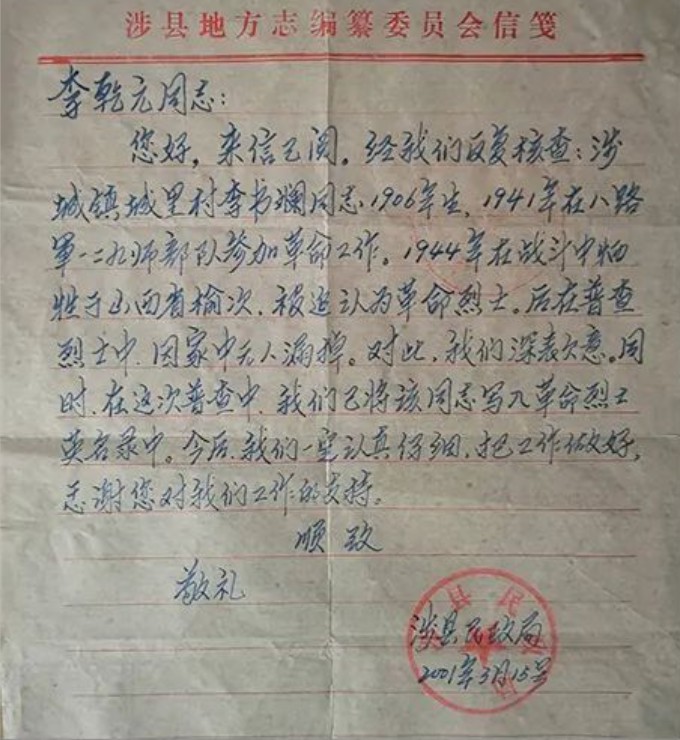 涉县地方志编纂委员会信笺
李乾元同志：
您好，来信已阅，经我们反复核查：涉
城镇城里村李书斓同志1906年生，1941年在八路
軍一二九师部队参加革命工作。1944年在战斗中牺
牲于山西省榆次，被追认为革命烈士。后在普查
烈士中，因家中无人漏掉。对此，我们深表欠意。同
时，在这次普查中，我们已将该同志写入革命烈士
英名录中。今后，我们一定认真仔细，把工作做好，
感谢您对我们工作的支持。
顺致
敬礼
涉县民政局
2001年3月15号